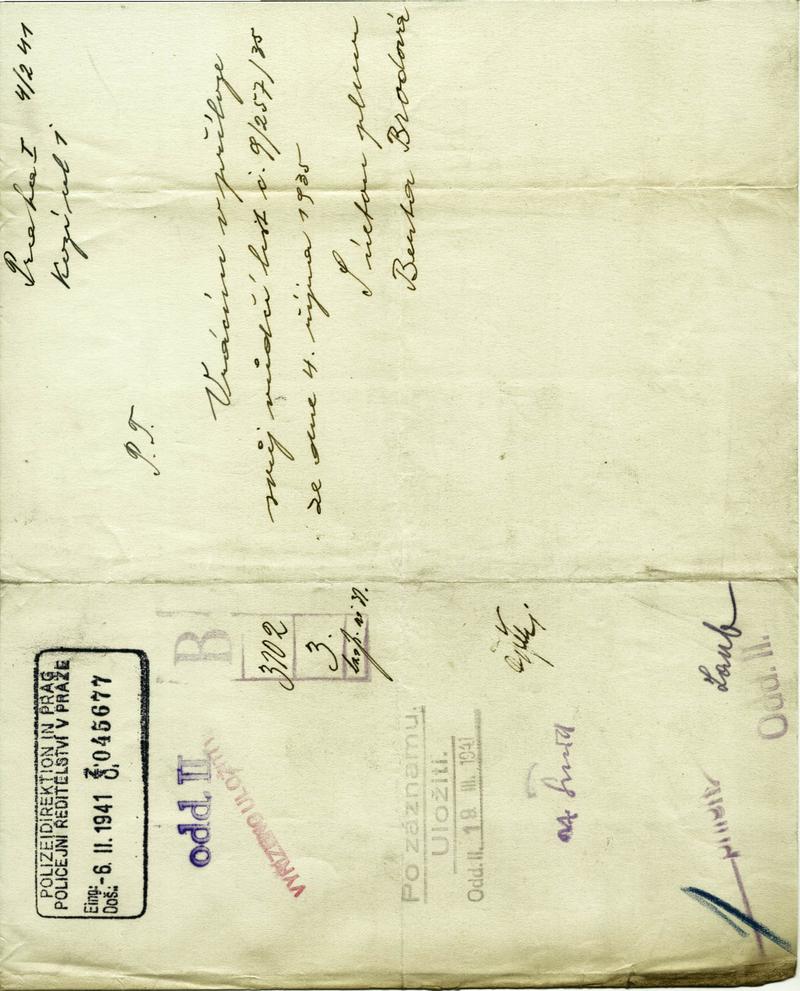 Praha I 4/2 41
Kozí ul 1
P. T.
Vrácím v příloze
svůj vůdčí list č. 9/257/35
ze dne 4. října 1935
S úctou
Berta Brodová
POLIZEIDIREKTION IN PRAG
POLICEJNÍ ŘEDITELSTVÍ V PRAZE
Eing:
Doš.: -6. II. 1941 Z. Č. 045677
B
3102
3.
odd. II
VYŘÍZENO ULOŽITI
Po záznamu.
Uložiti.
Odd. II. 19. III. 1941
Odd. II.